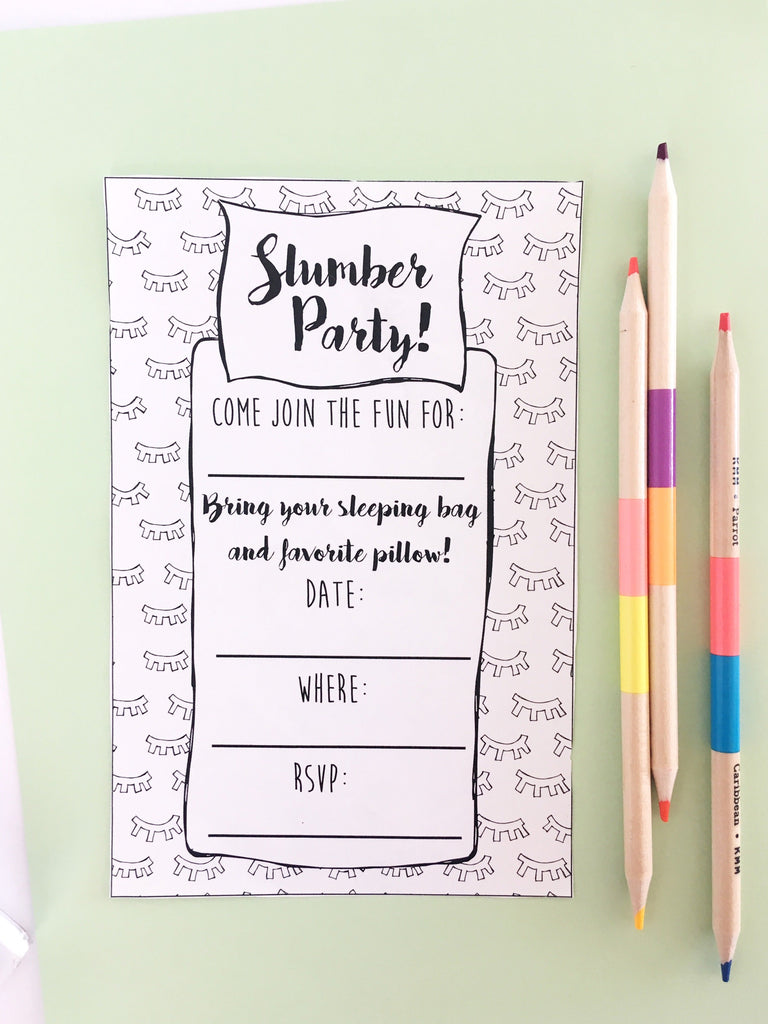 Slumber
Party!
COME JOIN THE FUN FOR:
Bring your sleeping bag
and favorite pillow!
DATE:
WHERE:
RSVP:
KMM • Parrot
Caribbean • KMM